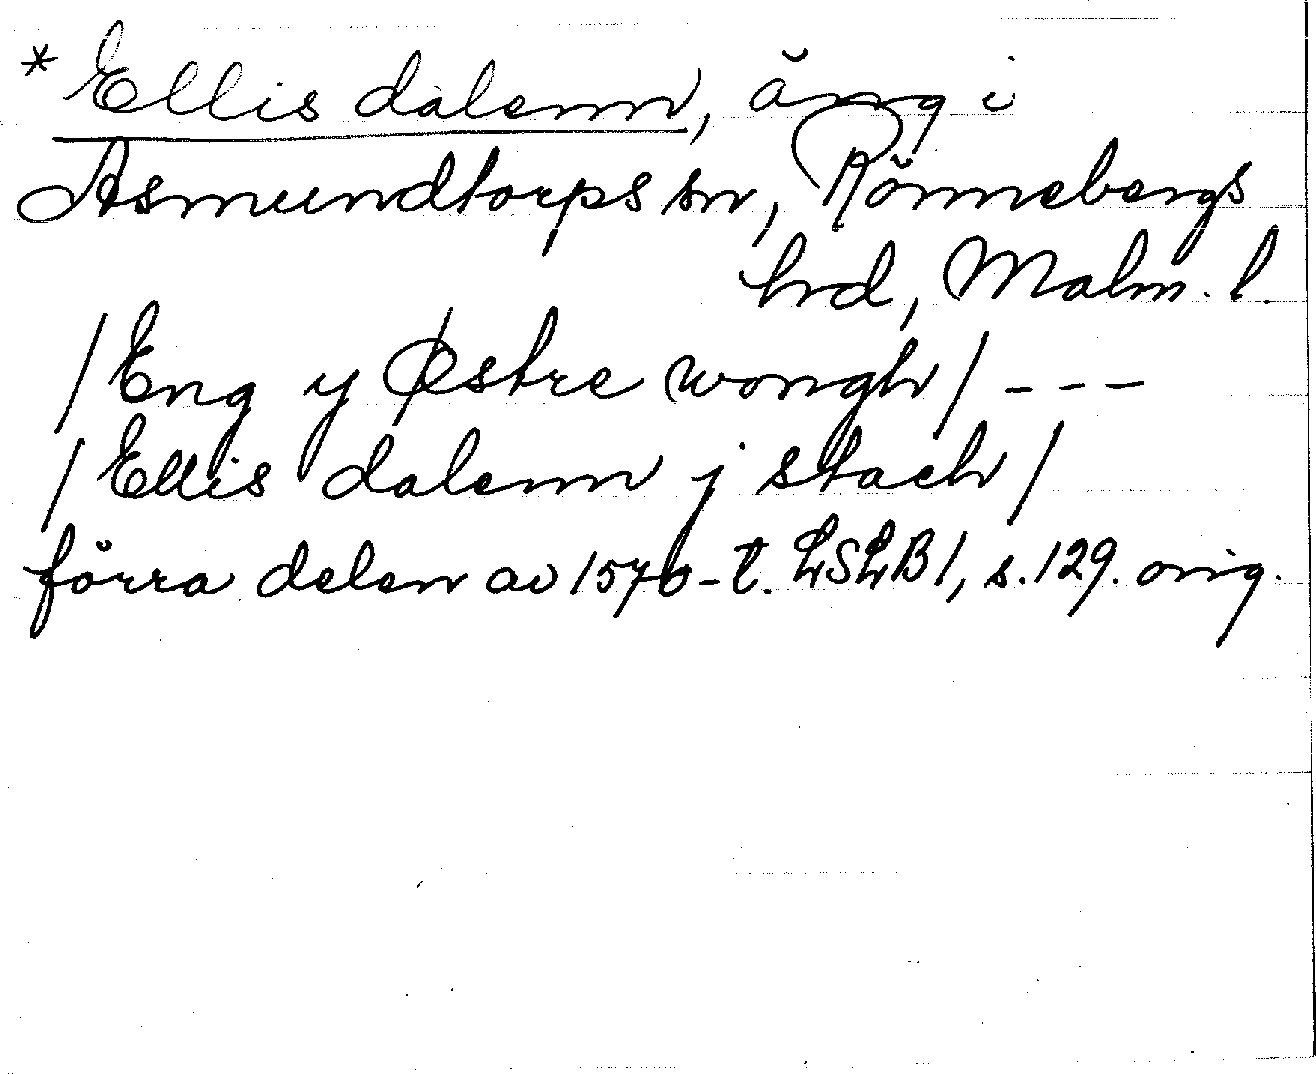 * Ellis dalenn, äng i
Asmundtorps sn, Rönnebergs
hrd, Malm. l.
/Eng y Østre wongh/ ---
/Ellis dalenn j stach/
förra delen av 1570-t. LSLB1, s.129. orig.